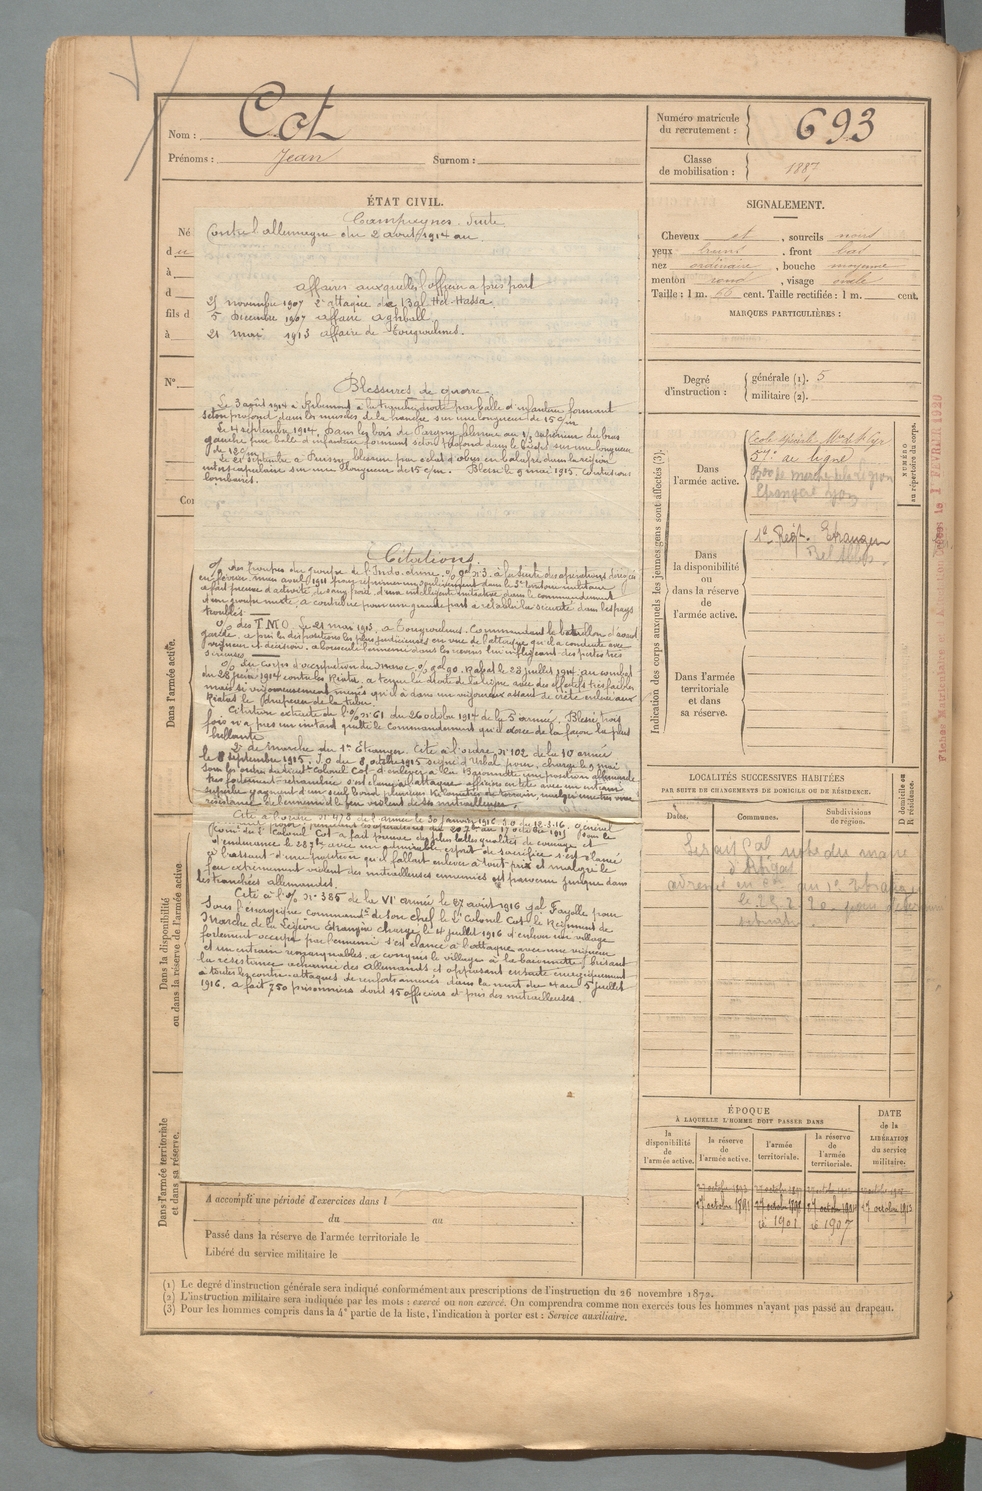 Nom : Cot
Prénoms : Jean Surnom :
Numéro matricule
du recrutement : 693
Classe
de mobilisation : 1887
ÉTAT CIVIL.
Né
d u
à
d
fils d
à
N°
Campagnes. Suite
Contre l'allemagne du 2 août 1914 au
Affaires auxquelles l'officier a pris part
novembre 1907 2e attaque de
5 décembre 1907 affaire Aghball
21 mai 1913 affaire de Tougroulines.
Blessures de guerre
Le 3 août 1914 à Ribemont à la hanche droite par balle d'infanterie formant
seton profond dans les muscles de la hanche sur une longueur de 15 c/m
Le 4 septembre 1914, dans les bois de Pargny blessure au 1/3 supérieur du bras
gauche par balle d'infanterie formant seton profond dans le biceps sur une longueur
de 12 c/m.
Le septembre à blessure par éclat d'obus en dans la région
interscapulaire sur une longueur de 15 c/m. Blessé le 9 mai 1915, contusions
lombaires.
Citations.
O/ des troupes du groupe de l'Indo-chine, O/ gal n°3. à la suite des opérations dirigées
en février mars avril 1911 pour réprimer un soulèvement dans le territoire militaire
a fait preuve d'activité de sang froid, d'une intelligente initiative, dans le commandement
d'un groupe mixte, a contribué pour une grande part à rétablir la sécurité dans les pays
troublés.
O/ des T.M.O. Le 21 mai 1913, à Tougroulines. Commandant le bataillon d'avant
garde, a pris les dispositions les plus judicieuses en vue de l'attaque qu'il a conduite avec
vigueur et décision, a bousculé l'ennemi dans les ravins lui infligeant des pertes très
sérieuses.
O/ du corps d'occupation du Maroc, O/ gal 90. Rabat le 28 juillet 1914. au combat
du 28 juin 1914 contre les Riata, a tenu la droite de la ligne avec des effectifs très faibles
mais si vigoureusement menés qu'il a dans un vigoureux assaut de crête enlevé aux
Riatas le drapeau de la tribu.
Citation extraite de l'O/ n° 61 du 26 octobre 1914 de la 5e armée. Blessé trois
fois n'a pas un instant quitté le commandement qu'il exerce de la façon la plus
brillante.
2e de marche du 1er Etranger. Cité à l'ordre n° 102 de la 10 armée
le 8 septembre 1915, J.O du 8 octobre 1915 signé d'Urbal pour, chargé le 9 mai
sous les ordres du lieutt Colonel Cot d'enlever à la Bayonnette une position allemande
très fortement retranchée s'est élancé à l'attaque officiers en tête avec un entrain
superbe gagnant d'un seul bond plusieurs kilomètres de terrain, malgré une très vive
résistance de l'ennemi et le feu violent de ses mitrailleuses.
Cité à l'ordre n° 478 de l'armée le 30 janvier 1916 J.O du 12-3-16. général
pour : pendant les opérations du 20 7bre au 17 octobre 1915, sous le
Comt du Lt Colonel Cot a fait preuve des plus belles qualités de courage et
d'endurance le 28 7bre avec un admirable esprit de sacrifice s'est élancé
à l'assaut d'une position qu'il fallait enlever à tout prix et malgré le
feu extrêmement violent des mitrailleuses ennemies est parvenu jusque dans
les tranchées allemandes.
Cité à l'O/ n° 385 de la VIe armée le 27 août 1916 gal Fayolle pour
Sous l'énergique commandt de son chef le Lt Colonel Cot le Régiment de
Marche de la Légion Etrangère chargé le 4 juillet 1916 d'enlever un village
fortement occupé par l'ennemi s'est élancé à l'attaque avec une vigueur
et un entrain remarquables, a conquis le village à la baïonnette, brisant
la résistance acharnée des allemands et opposant ensuite énergiquement
à toutes les contre-attaques de renforts ennemis dans la nuit du 4 au 5 juillet
1916, a fait 750 prisonniers dont 15 officiers et pris des mitrailleuses.
Dans l'armée active.
Dans la disponibilité
ou dans la réserve de l'armée active.
Dans l'armée territoriale
et dans sa réserve.
A accompli une période d'exercices dans l
du au
Passé dans la réserve de l'armée territoriale le
Libéré du service militaire le
SIGNALEMENT.
Cheveux et , sourcils noirs
yeux bruns , front bas
nez ordinaire , bouche moyenne
menton rond , visage ovale
Taille : 1 m. 66 cent. Taille rectifiée : 1 m. cent.
MARQUES PARTICULIÈRES :
Degré
d'instruction :
générale (1). 5
militaire (2).
Indication des corps auxquels les jeunes gens sont affectés (3).
NUMÉRO
au répertoire du corps.
Dans
l'armée active.
Ecole spéciale Mre de St Cyr
57e de ligne
Etrangère
Dans
la disponibilité
ou
dans la réserve
de
l'armée active.
1er Regt. Etranger
Bel Abbès
Dans l'armée
territoriale
et dans
sa réserve.
LOCALITÉS SUCCESSIVES HABITÉES
PAR SUITE DE CHANGEMENTS DE DOMICILE OU DE RÉSIDENCE.
Dates.
Communes.
Subdivisions
de région.
D domicile ou
R résidence.
note du maire
adressé au 1er Etranger
le 28 2 20
ÉPOQUE
À LAQUELLE L'HOMME DOIT PASSER DANS
la
disponibilité
de
l'armée active.
la réserve
de
l'armée active.
l'armée
territoriale.
la réserve
de
l'armée
territoriale.
DATE
de la
LIBÉRATION
du service
militaire.
octobre 1891
1901
1907
octobre 1913
(1) Le degré d'instruction générale sera indiqué conformément aux prescriptions de l'instruction du 26 novembre 1872.
(2) L'instruction militaire sera indiquée par les mots : exercé ou non exercé. On comprendra comme non exercés tous les hommes n'ayant pas passé au drapeau.
(3) Pour les hommes compris dans la 4e partie de la liste, l'indication à porter est : Service auxiliaire.